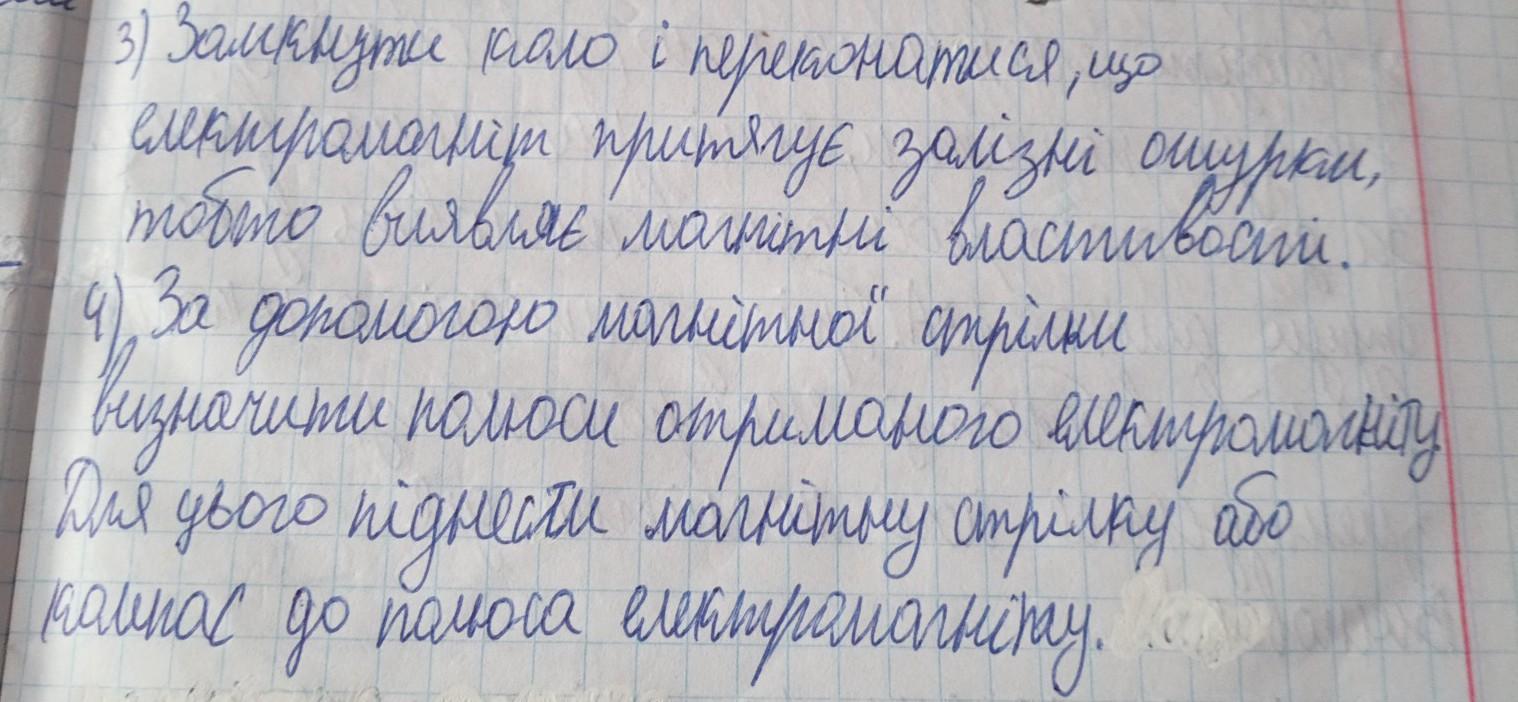 3) Замкнути коло і переконатися, що
електромагніт притягує залізні ошурки,
тобто виявляє магнітні властивости.
4) За допомогою магнітної стрілки
визначити полюси отриманого електромагніту
Для цього піднести магнітну стрілку або
компас до полюса електромагніту.